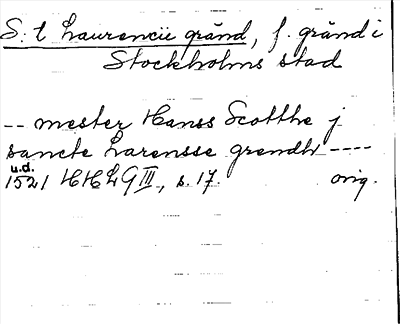 S:t Laurencii gränd, f. gränd i
Stockholms stad
-- mester Hanss Scotthe j
sancte Larensse grendh ----
u.d.
1521 HHLG III, s. 17. orig.